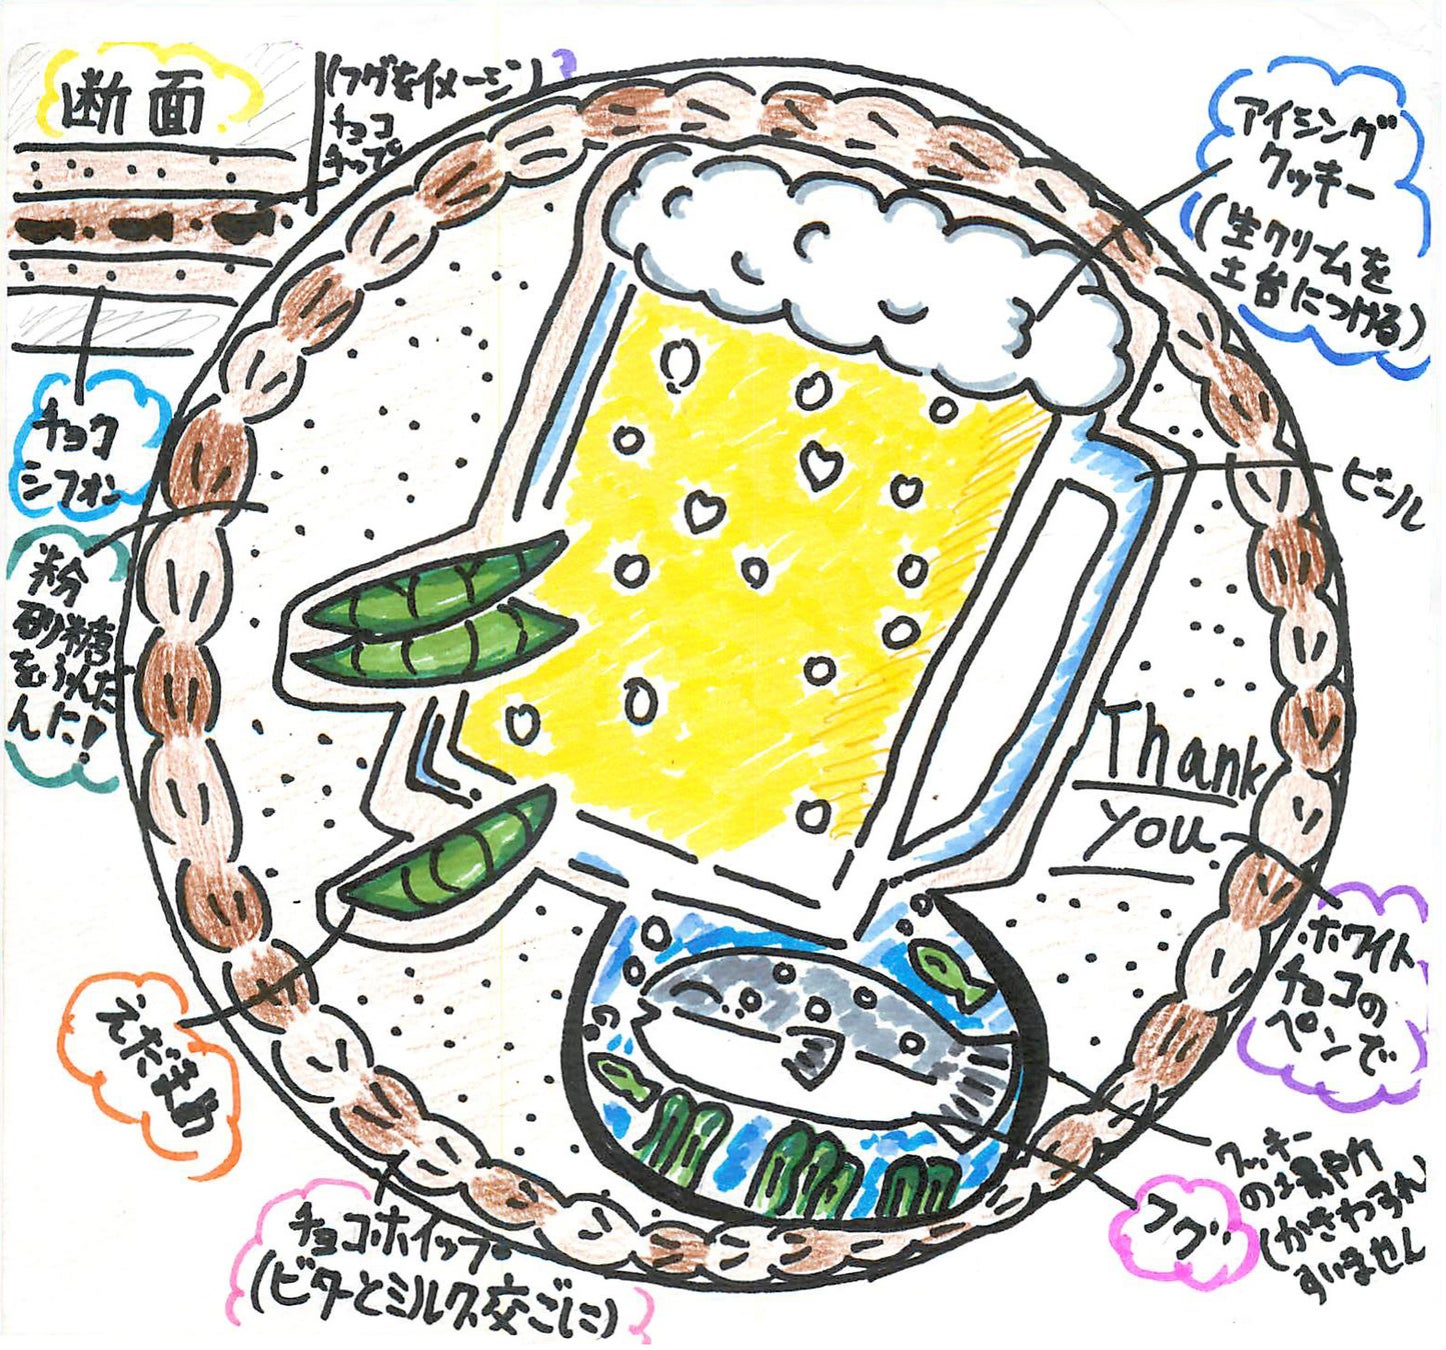 断面
(フグをイメージ)
チョコ
チップ
アイシング
クッキー
(生クリームを
土台につける)
チョコ
シフォン
ビール
粉
砂糖
をふんだ
んに!
Thank
you.
ホワイト
チョコの
ペンで
えだまめ
クッキー
フグ
チョコホイップ
(ビターとミルク交ごに)
すいません